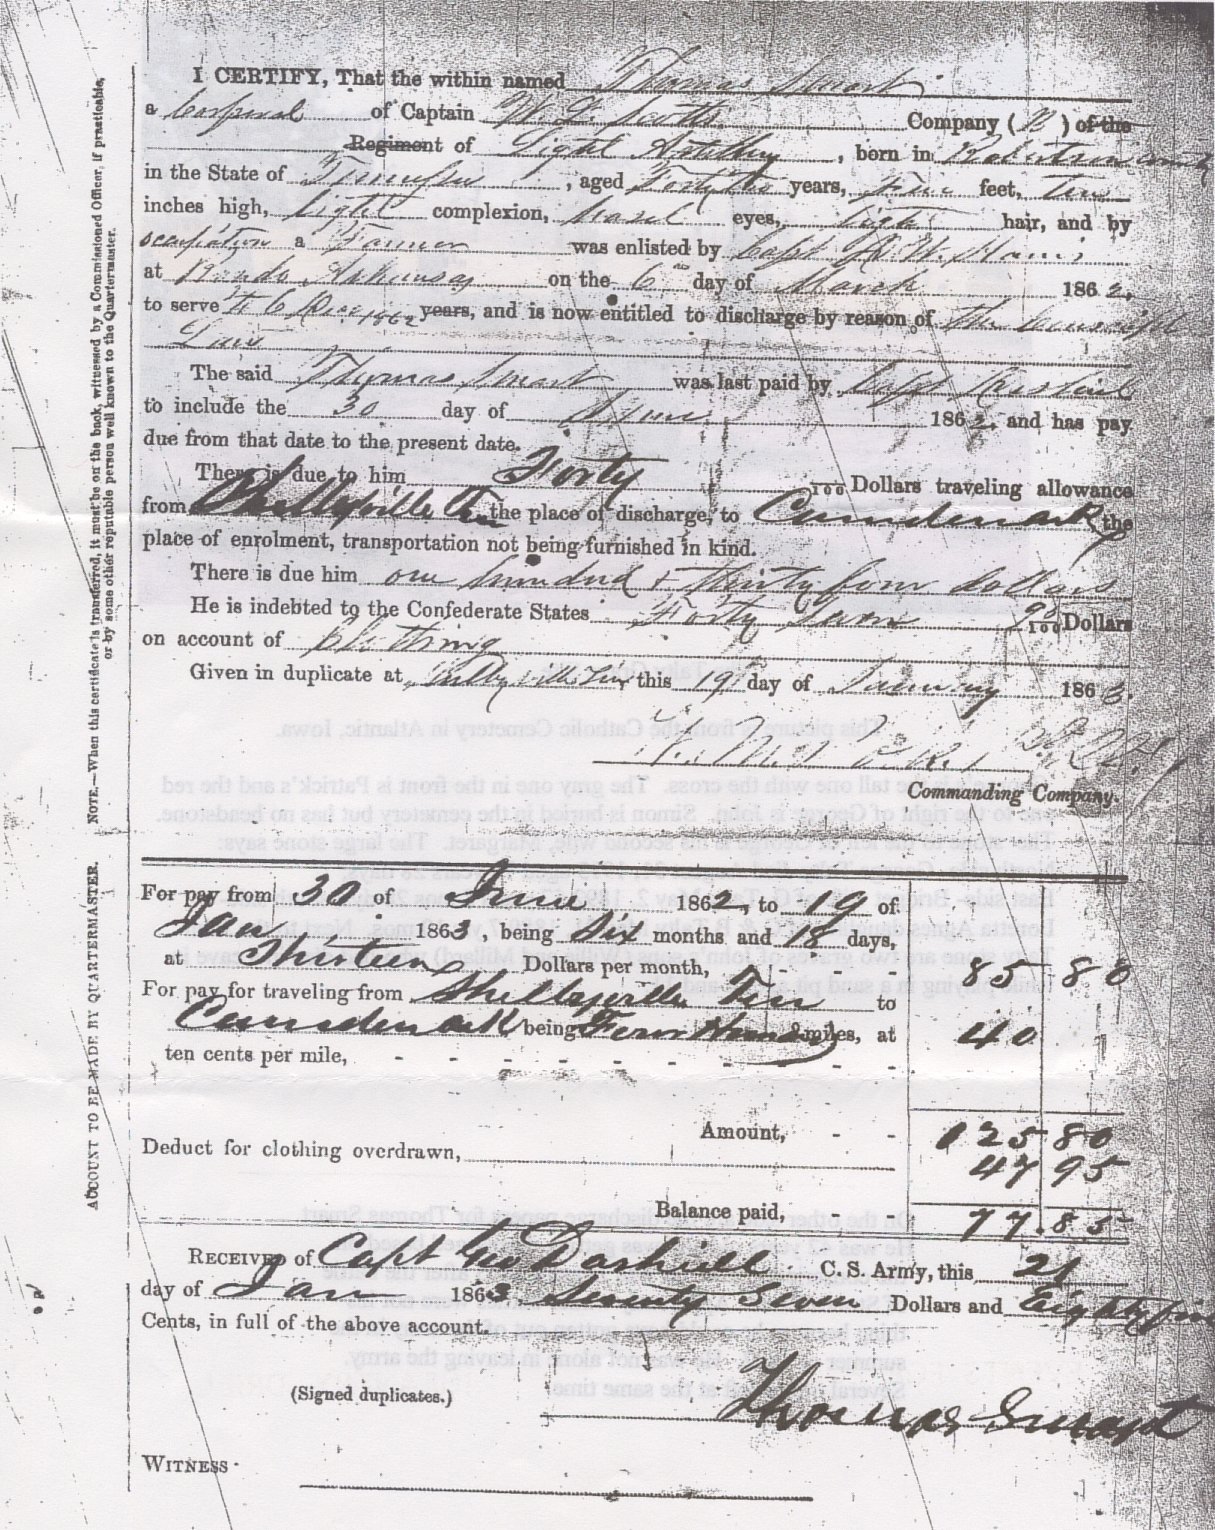 I CERTIFY, That the within named Thomas Smart
a Corporal of Captain W. L. Scotts Company (B) of the
Regiment of Light Artillery, born in Robertson county
in the State of Tennessee, aged Forty two years, Five feet, Ten
inches high, light complexion, hasel eyes, light hair, and by
occupation a Farmer was enlisted by Capt
at Arkansas on the 6th day of March 1862,
to serve 1862 years, and is now entitled to discharge by reason of the Conscript
Law
The said Thomas Smart was last paid by Capt
to include the 30 day of June 1862, and has pay
due from that date to the present date.
There is due to him Forty 100 Dollars traveling allowance
from Shelbyville Ten the place of discharge, to Camden Ark the
place of enrolment, transportation not being furnished in kind.
There is due him one hundred & thirty four dollars
He is indebted to the Confederate States Forty Seven 95/100 Dollars
on account of Clothing
Given in duplicate at Shelbyville Ten, this 19 day of January 1863.
Commanding Company.
For pay from 30 of June 1862, to 19 of
Jan 1863, being Six months and 18 days,
at Thirteen Dollars per month, - - - 85 80
For pay for traveling from Shelbyville Ten to
Camden Ark being Four Hundred miles, at 40
ten cents per mile, - - - - - - - - - -
Amount, - - 125 80
Deduct for clothing overdrawn, 47 95
Balance paid, - - 77.85
RECEIVED of Capt Geo Dashiell C. S. Army, this 21
day of Jan 1863 Seventy Seven Dollars and Eighty five
Cents, in full of the above account.
(Signed duplicates.)
Thomas Smart
WITNESS
NOTE.—When this certificate is transferred, it must be on the back, witnessed by a Commissioned Officer, if practicable,
or by some other reputable person well known to the Quartermaster.
ACCOUNT TO BE MADE BY QUARTERMASTER.